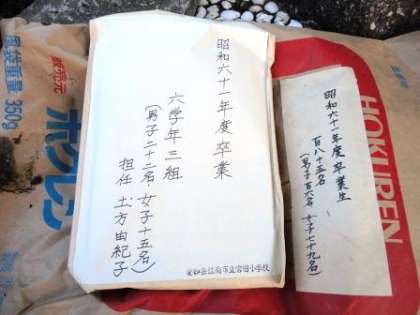 昭和六十一年度卒業
六学年三組
(男子二十二名、女子十五名)
担任 土方由紀子
愛知県江南市立宮田小学校
昭和六十一年度卒業生
百八十五名
(男子百六名 女子七十九名)
HOKUREN
ホクレン